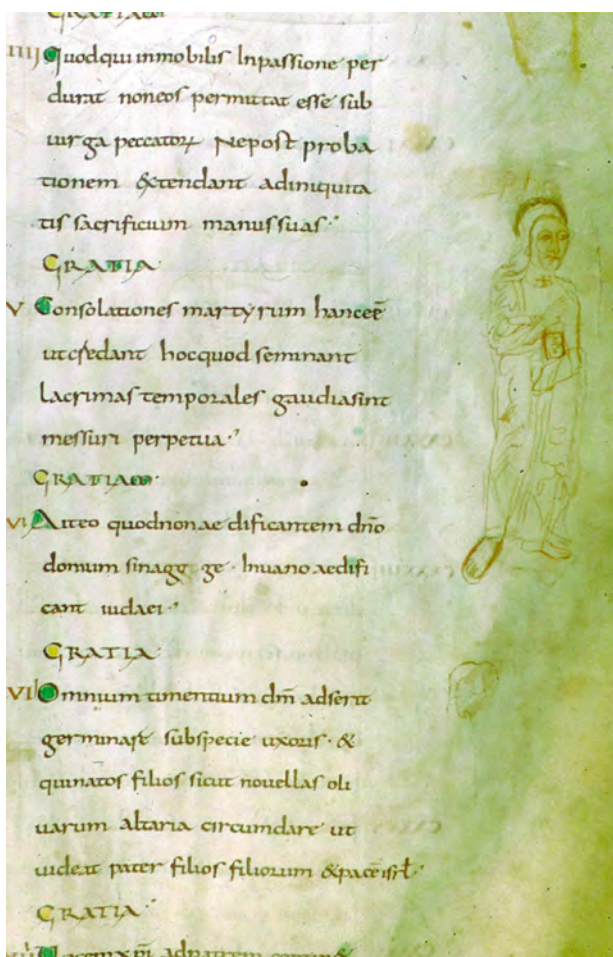 GRATIAM
IIIJ Quodqui inmobilis Inpassione per
durat noneos permittat esse sub
uirga peccatoꝝ Nepost proba
tionem &tendant adiniquita
tis sacrificium manus suas
GRATIA
V Consolationes martyrum hanceē
utcredant hocquod seminant
lacrimas temporales gaudiasint
messuri perpetua
GRATIAM
VI Aiteo quodnonae dificantem dn̄o
domum sinagg ge Inuano aedifi
cant iudaei
GRATIA
VII Omnium timentium dm̄ adserit
germinast subspecie uxoris &
quinatos filios sicut nouellas oli
uarum altaria circumdare ut
uiderit pater filios filiorum &pacē isrł
GRATIA
adpatrem